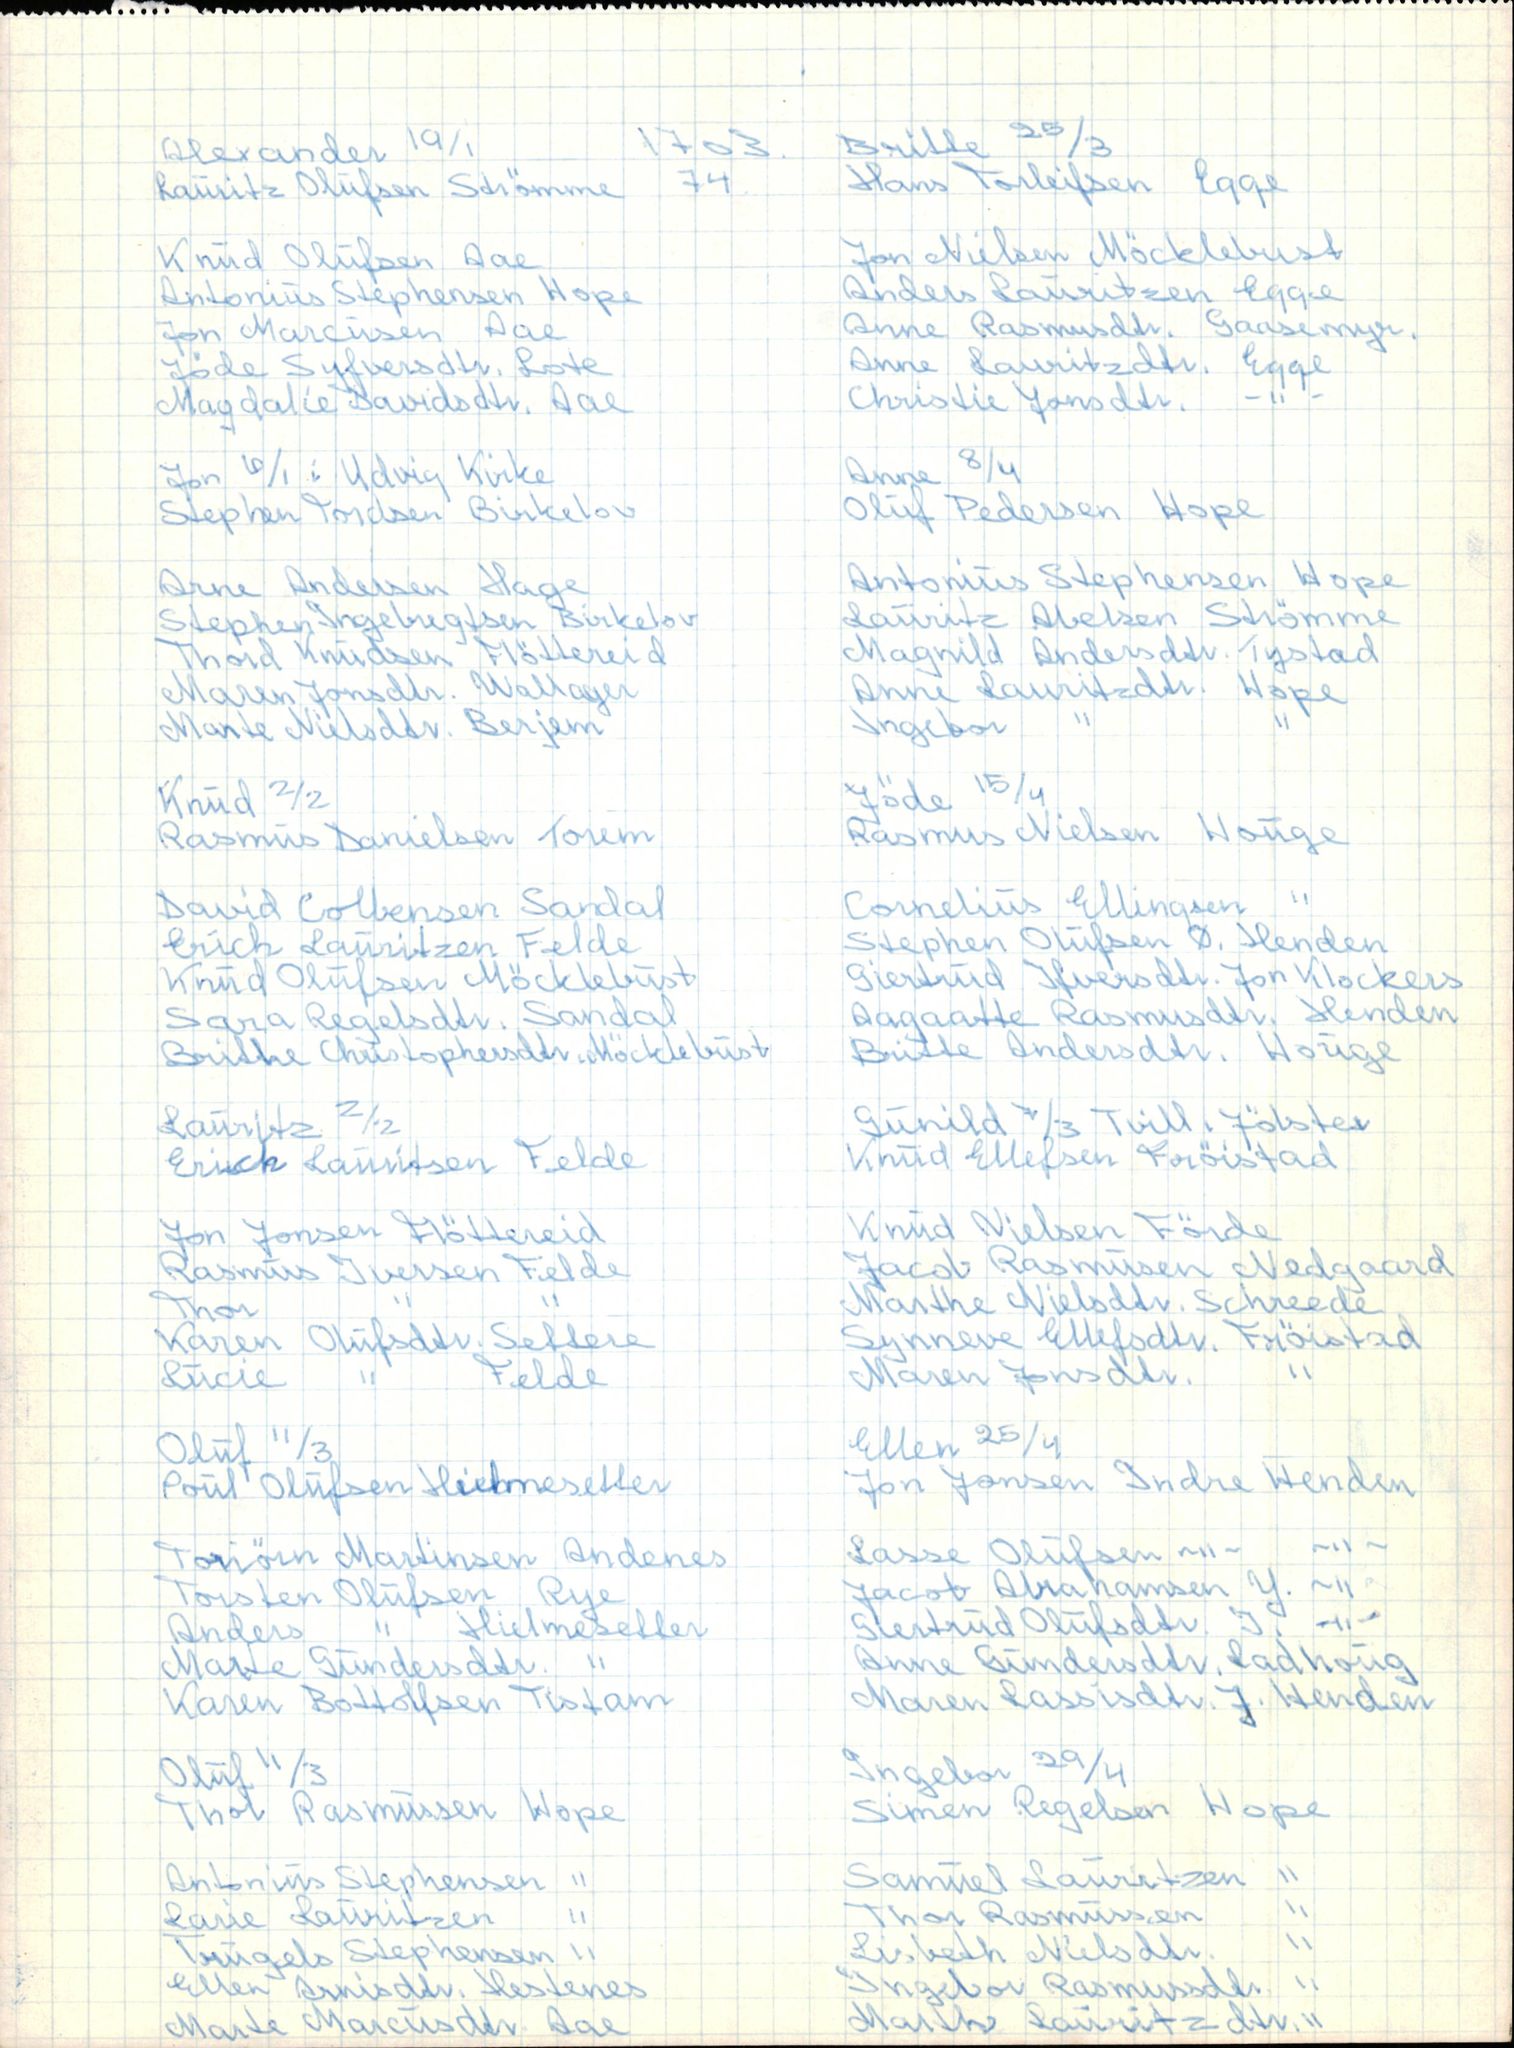 Alexander 19/1 1703.
Lauritz Olufsen Strömme 74
Knud Olufsen Aae
Antonius Stephensen Hope
Jon Marcusen Aae
Jöde Syfversdtr. Lote
Magdalie Davidsdtr. Aae
Jon 6/1 i Udvig Kirke
Stephen Tordsen Birkelov
Arne Andersen Hage
Stephen Ingebregtsen Birkelov
Thord Knudsen Flöttereid
Maren Jonsdtr. Wallager
Marte Nielsdtr. Berjem
Knud 2/2
Rasmus Danielsen Torem
David Colbensen Sandal
Erick Lauritzen Felde
Knud Olufsen Möcklebust
Sara Regelsdtr. Sandal
Brithe Christophersdtr. Möcklebust
Lauritz 2/2
Erick Lauritsen Felde
Jon Jonsen Flöttereid
Rasmus Iversen Felde
Thor " "
Karen Olufsdtr. Settere
Lucie " Felde
Oluf 11/3
Poul Olufsen Hielmesetter
Toriörn Martinsen Andenes
Torsten Olufsen Rye
Anders " Hielmesetter
Marte Gundersdtr. "
Karen Bottolfsen Tistam
Oluf 11/3
Thor Rasmussen Hope
Antonius Stephensen "
Larie Lauritzen "
Trugels Stephensen "
Ellen Arnisdtr. Hestenes
Marte Marcusdtr. Aae
Britte 25/3
Hans Torleifsen Egge
Jon Nielsen Möcklebust
Anders Lauritzen Egge
Anne Rasmusdtr. Gaasemyr.
Anne Lauritzdtr. Egge
Christie Jonsdtr. -"-
Anne 8/4
Oluf Pedersen Hope
Antonius Stephensen Hope
Lauritz Abelsen Strömme
Magnild Andersdtr. Tystad
Anne Lauritzdtr. Hope
Ingebor " "
Jöde 15/4
Rasmus Nielsen Houge
Cornelius Ellingsen "
Stephen Olufsen Ø. Henden
Giertrud Ifversdtr. Jon Klockers
Aagaatte Rasmusdtr. Henden
Britte Andersdtr. Houge
Gunild /3 Tvill. Jölster
Knud Ellefsen Fröistad
Knud Nielsen Förde
Jacob Rasmusen Nedgaard
Marthe Nielsdtr. Schreede
Synneve Ellefsdtr. Fröistad
Maren Jonsdtr. "
Ellen 25/4
Jon Jonsen Indre Henden
Lasse Olufsen -"- -"-
Jacob Abrahamsen Y. -"-
Giertrud Olufsdtr. I. -"-
Anne Gundersdtr. Ladhoug
Maren Lassisdtr. J. Henden
Ingebor 29/4
Simen Regelsen Hope
Samuel Lauritzen "
Thor Rasmussen "
Lisbeth Nielsdtr. "
Ingebor Rasmusdtr. "
Marthe Lauritzdtr. "